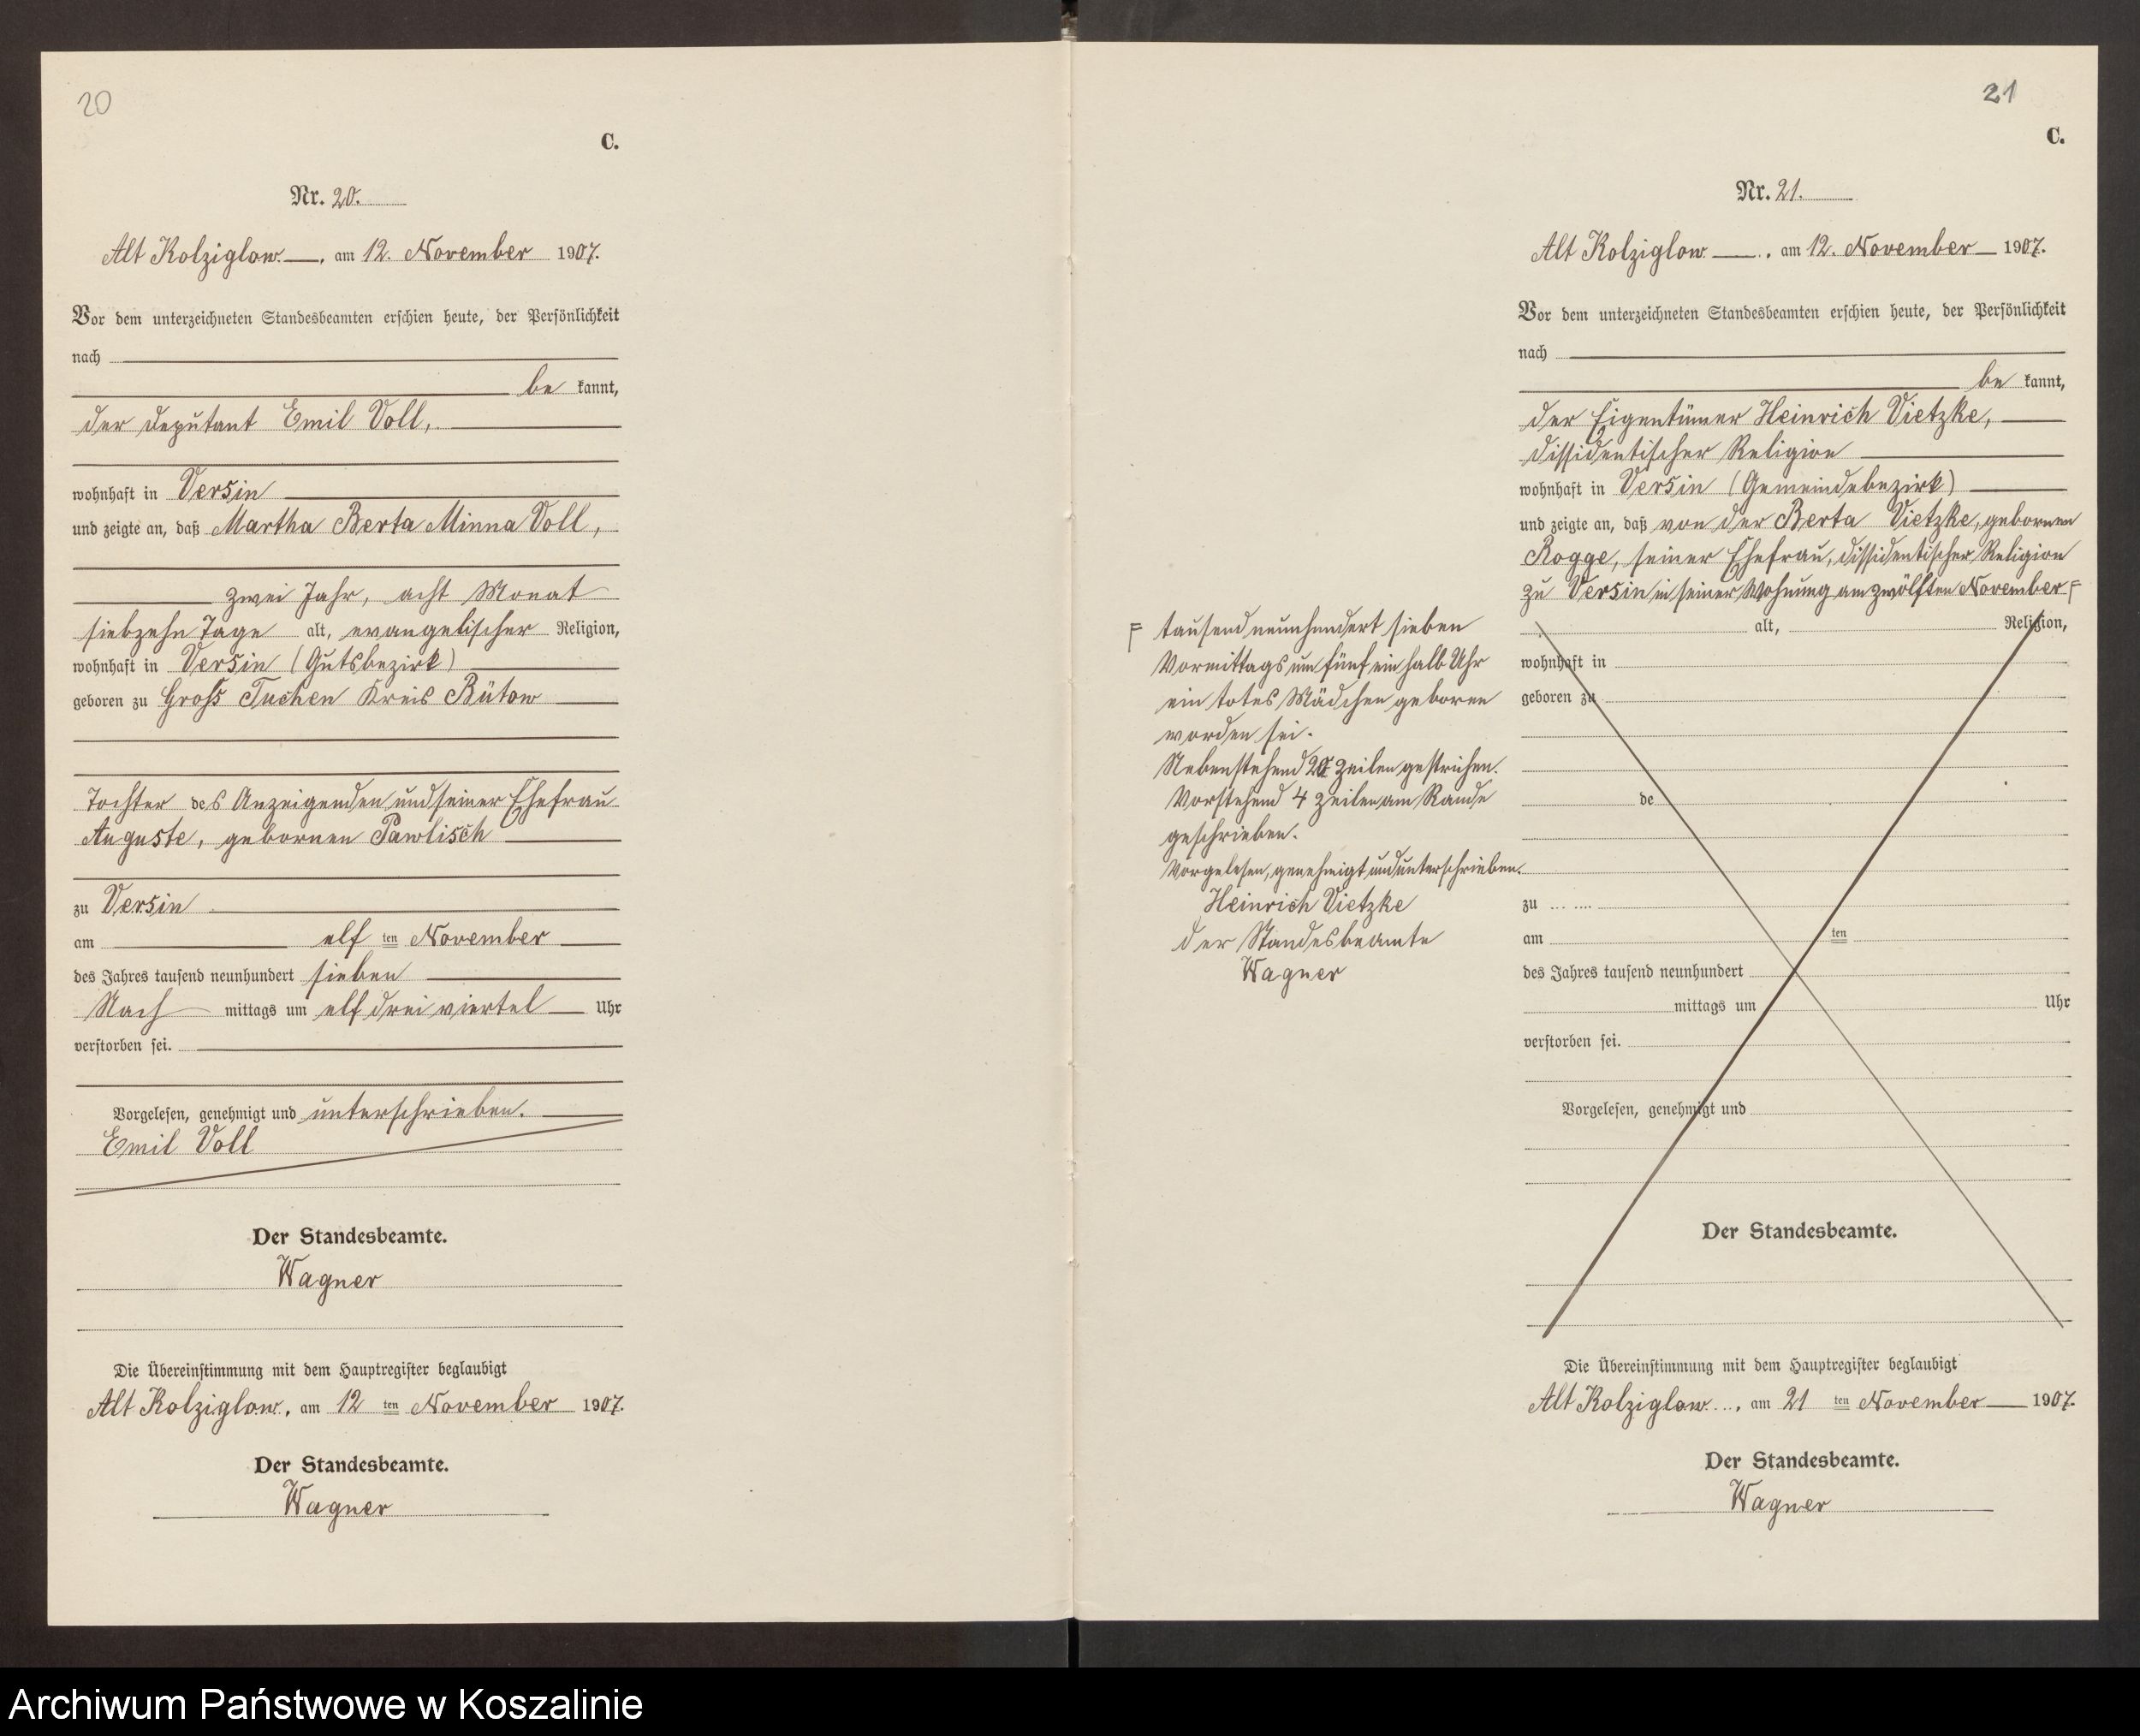 20
C.
Nr. 20.
Alt Kolziglow, am 12. November 1907.
Vor dem unterzeichneten Standesbeamten erschien heute, der Persönlichkeit
nach
be kannt,
der Deputant Emil Voll,
wohnhaft in Versin
und zeigte an, daß Martha Berta Minna Voll,
zwei Jahr, acht Monat
siebzehn Tage alt, evangelischer Religion,
wohnhaft in Versin (Gutsbezirk)
geboren zu Gross Tuchen Kreis Bütow
Tochter des Anzeigenden und seiner Ehefrau
Auguste, gebornen Pawlisch
zu Versin
am elf ten November
des Jahres tausend neunhundert sieben
Nach mittags um elf drei viertel Uhr
verstorben sei.
Vorgelesen, genehmigt und unterschrieben.
Emil Voll
Der Standesbeamte.
Wagner
Die Übereinstimmung mit dem Hauptregister beglaubigt
Alt Kolziglow, am 12 ten November 1907.
Der Standesbeamte.
Wagner
21
C.
Nr. 21.
Alt Kolziglow, am 12. November 1907.
Vor dem unterzeichneten Standesbeamten erschien heute, der Persönlichkeit
nach
be kannt,
der Eigentümer Heinrich Vietzke,
dissidentischer Religion
wohnhaft in Versin (Gemeindebezirk)
und zeigte an, daß von der Berta Vietzke, gebornen
Rogge, seiner Ehefrau, dissidentischer Religion
zu Versin in seiner Wohnung am zwölften November F
F tausend neunhundert sieben
Vormittags um fünf ein halb Uhr
ein totes Mädchen geboren
worden sei.
Nebenstehend Zeilen gestrichen.
Vorstehend 4 Zeilen am Rande
geschrieben.
Vorgelesen, genehmigt und unterschrieben.
Heinrich Vietzke
der Standesbeamte
Wagner
alt, Religion,
wohnhaft in
geboren zu
de
zu
am ten
des Jahres tausend neunhundert
mittags um Uhr
verstorben sei.
Vorgelesen, genehmigt und
Der Standesbeamte.
Die Übereinstimmung mit dem Hauptregister beglaubigt
Alt Kolziglow, am 21 ten November 1907.
Der Standesbeamte.
Wagner
Archiwum Państwowe w Koszalinie